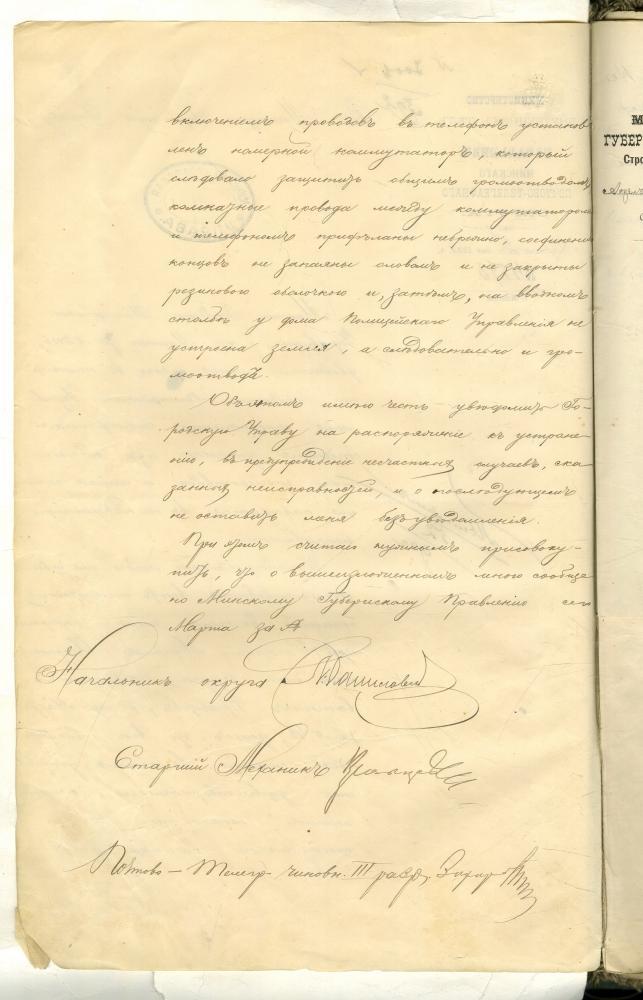 включеніемъ проводовъ въ телефонъ установ-
ленъ номерной коммутаторъ, который
слѣдовало защитить общимъ громоотводомъ
комнатные провода между коммутаторомъ
и телефономъ прикрѣплены небрежно, соединенія
концовъ не запаяны оловомъ и не закрыты
резиновою оболочкою и, затѣмъ, на вводномъ
столбѣ у дома Полицейскаго Управленія не
устроена земля, а слѣдовательно и гро-
моотводъ.
Объ этомъ имѣю честь увѣдомить Го-
родскую Управу на распоряженіе къ устране-
нію, въ предупрежденіе несчастныхъ случаевъ, ска-
занныхъ неисправностей, и о послѣдующемъ
не оставить меня безъ увѣдомленія.
При этомъ считаю нужнымъ присовоку-
пить, что о вышеизложенномъ мною сообще-
но Минскому Губернскому Правленію сего
Марта за №
Начальникъ округа
Старшій Механикъ
Почтово-Телегр. чиновн. III разр.
М
ГУБЕР
Стро